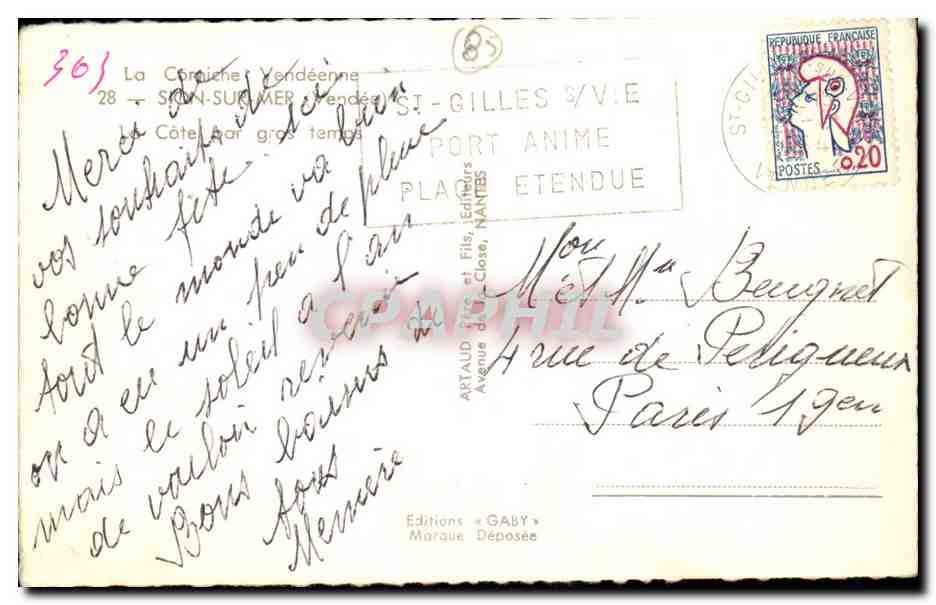 303
85
La Corniche Vendéenne
28 — SION-SUR-MER (Vendée)
La Côte par gros temps
ST-GILLES S/VIE
PORT ANIME
PLAGE ETENDUE
ST-GIL
REPUBLIQUE FRANÇAISE
POSTES 0.20
Merci de
vos souhaits de
bonne fête ici
tout le monde va bien
on a eu un peu de pluie
mais le soleil a l'air
de vouloir revenir
Bons baisers de
tous
Mémère
ARTAUD Père et Fils, Editeurs
Avenue de la Close, NANTES
CPAPHIL
Mon et Mme Beugnet
4 rue de Périgueux
Paris 19em
Editions « GABY »
Marque Déposée